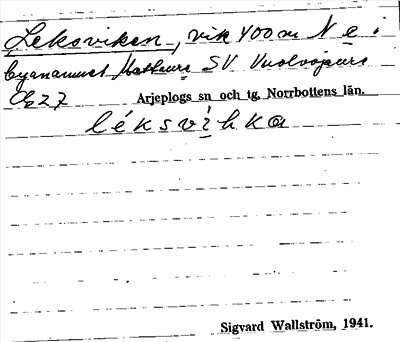 Leksviken, vik 400 m N e i
byanamnet Mattaure SV Vuolvojaure
Ög 27 Arjeplogs sn och tg, Norrbottens län.
léksvìhka
Sigvard Wallström, 1941.